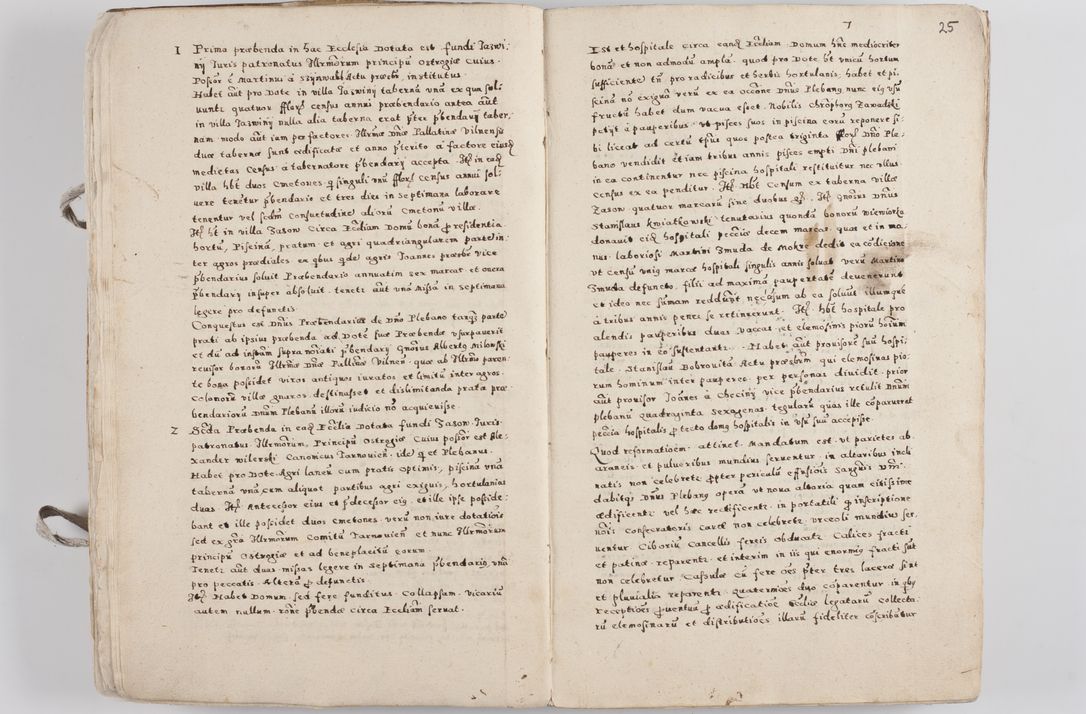 1 Prima præbenda in hac Ecclesia Dotata est fundi Jazwi:
nÿ Iuris patronatus Illrmorum principũ Ostrogiæ Cuius
Possor ẽ Martinus à Actu præsbr̃, institutus.
Habet aũt pro Dote in villa Jazwinÿ tabernã vnã ex qua sol:
uunt quatuor fflor census annui præbendario antea aũt
in villa Jazwinÿ nulla alia taberna erat pter pbendarÿ taber,
nam. modo aũt iam per factorẽ Illrmæ Dnæ Pallatinæ Vilnensis
duæ tabernæ sunt ædificatæ et anno pterito à factore eiusdẽ
medietas Census à tabernatore pbendarÿ accepta. Itẽ in eadẽ
villa hẽt duos Cmetones q singuli vnũ fflor census annui sol:
uere tenetur pbendario et tres dies in septimana laborare
tenentur vel scdm Consuetudinẽ aliorũ Cmetonũ villæ.
Itẽ hẽt in villa Jasow Circa Ecclliam Domũ bonã p residentia
hortũ, Piscinã, pratum et agri quadriangularem partẽ in:
ter agros prædiales ex qbus qde agris Joannes præsbr̃ vice
pbendarius soluit Præbendario annuatim sex marcas et onera
pbendarÿ insuper absoluit. tenetr aũt vnã Missã in septimana
legere pro defunctis.
Conquestus est Dnus Præbendarius de Dno Plebano tanq parte
prati ab ipsius præbenda ad Dotẽ suæ Præbendæ vsurpauerit
et dũ ad instam supra noĩati pbendarÿ Gnosus Alberto Milonski
reuisor bonorũ Illrmæ Dnæ Pallinæ Vilnen. quæ ab Illrmo paren:
te bona possidet viros antiquos iuratos et limitũ inter agros
Colonorũ villæ gnaros destinasset et dislimitanda prata præ:
bendariorũ Dnum Plebanũ illorũ iudicio nõ acquieuisse.
2 Scda Præbenda in eadẽ Ecclia Dotata fundi Jasow. Iuris
patronatus. Illrmorum, Principũ Ostrogiæ Cuius possor est Ale:
xander wilerski Canonicus Tarnouien̄. ide q et Plebanus.
Habet pro Dote. Agri laneũ cum pratis optimis, piscinã vnã
tabernã vnã, cum aliquot partibus agri exiguis, hortulanias
duas. Itẽ Antecessor eius et pdecessor eig. et ille ipse posside:
bant et ille possidet duos Cmetones. verũ non iure dotatiõis
sed ex grã Illrmorum Comitũ Tarnouien̄ et nunc Illrmorum
principũ Ostrogiæ et ad beneplacitũ eorum.
Tenetr aũt duas missas legere in septimana pbendario, vnã
pro peccatis. Alterã p defunctis.
Itẽ Habet Domum sed fere funditus Collapsam. vicariũ
autem nullum. rone pbendæ Circa Eccliam seruat.
25
Est et hospitale Circa eandẽ Eccliam. Domum hñs mediocriter
bonã et non admodũ amplã. quod pro Dote hẽt vnicũ hortum
sufficientẽ tñ pro radicibus et herbis hortulanis, habet et pi:
scinã nõ exiguã verũ ex ea occõne Dnus Plebang nunc eig usũ
fructũ habet dum vacua esset. Nobilis Chrÿstoporg Zawadzki
petÿt à pauperibus. vt pisces suos in piscina eorũ reponere si:
bi liceat ad certũ tẽpus quos postea triginta fflor Dno Ple:
bano vendidit et iam tribus annis pisces empti Dni plebani
in ea continentur nec piscina hospitali restituitur nec illus
census ex ea penditur. Itẽ Hẽt Censum ex taberna villæ
Jasow quatuor marcarũ sine duobus gr. Itẽ Gnosus Dnus
Stanislaus Kwiatkowski. tenutarius quondã bonorũ Wiewiorka
donauit eidẽ hospitali pecciis decem marcas. quas et in ma:
nus. laboriosi Martini Zmuda de Mokre dedit ea cõditione
vt censũ vnig marcæ hospitali singulis annis soluat verũ Martino
Zmuda defuncto. filii ad maximã paupertatẽ deuenerunt
et ideo nec sũmam reddũt, nec censum ab ea soluũt illumque
à tribus annis penes se retinuerunt. Itẽ hẽt hospitale pro
alendis pauperibus duas Vaccas, et elemosinis piorũ hoĩum
pauperes in eo sustentantr. Habet aũt prouisorẽ suũ hospi:
tale. Stanislaũ Dobrouitã Actu præsbrm qui elemosinas pio:
rum hominum inter pauperes. per personas diuidit. prior
aũt prouisor Joañes à Checinÿ vice pbendarius retulit Dnum
plebanũ quadraginta sexagenas. tegularũ quas ille cõparueret
peccia hospitalis p tecto domg hospitalis in vsũ suũ accepisse.
Quod reformatioẽm. attinet. Mandatum est. vt parietes ab
araneis. et pulueribus mundius seruentur. in altaribus incli
natis non celebretr ppter periculũ effusiõis Sangnis Dni.
dabitqg Dnus Plebang operã vt noua altaria quam citissime
ædificentr vel hæc rectificentr. in portatili q inscriptione
noĩs Consecratoris caret non celebretr. vrceoli mundius ser,
uentur. Ciboriũ Cancellis ferreis obducatr. Calices fracti
et patinæ. reparentr. et interim in iis qui enormig fracti sũt
non celebretur. Casulæ cũ fere oẽs pter tres laceræ sint
et pluuialia reparentr. quaternioẽs duo cõparentur in qbg
receptiões puentuũ p ædificatiõe eccliæ legatarũ collecta
rũ elemosinarũ et distributiões illarũ fideliter cõscribãtur